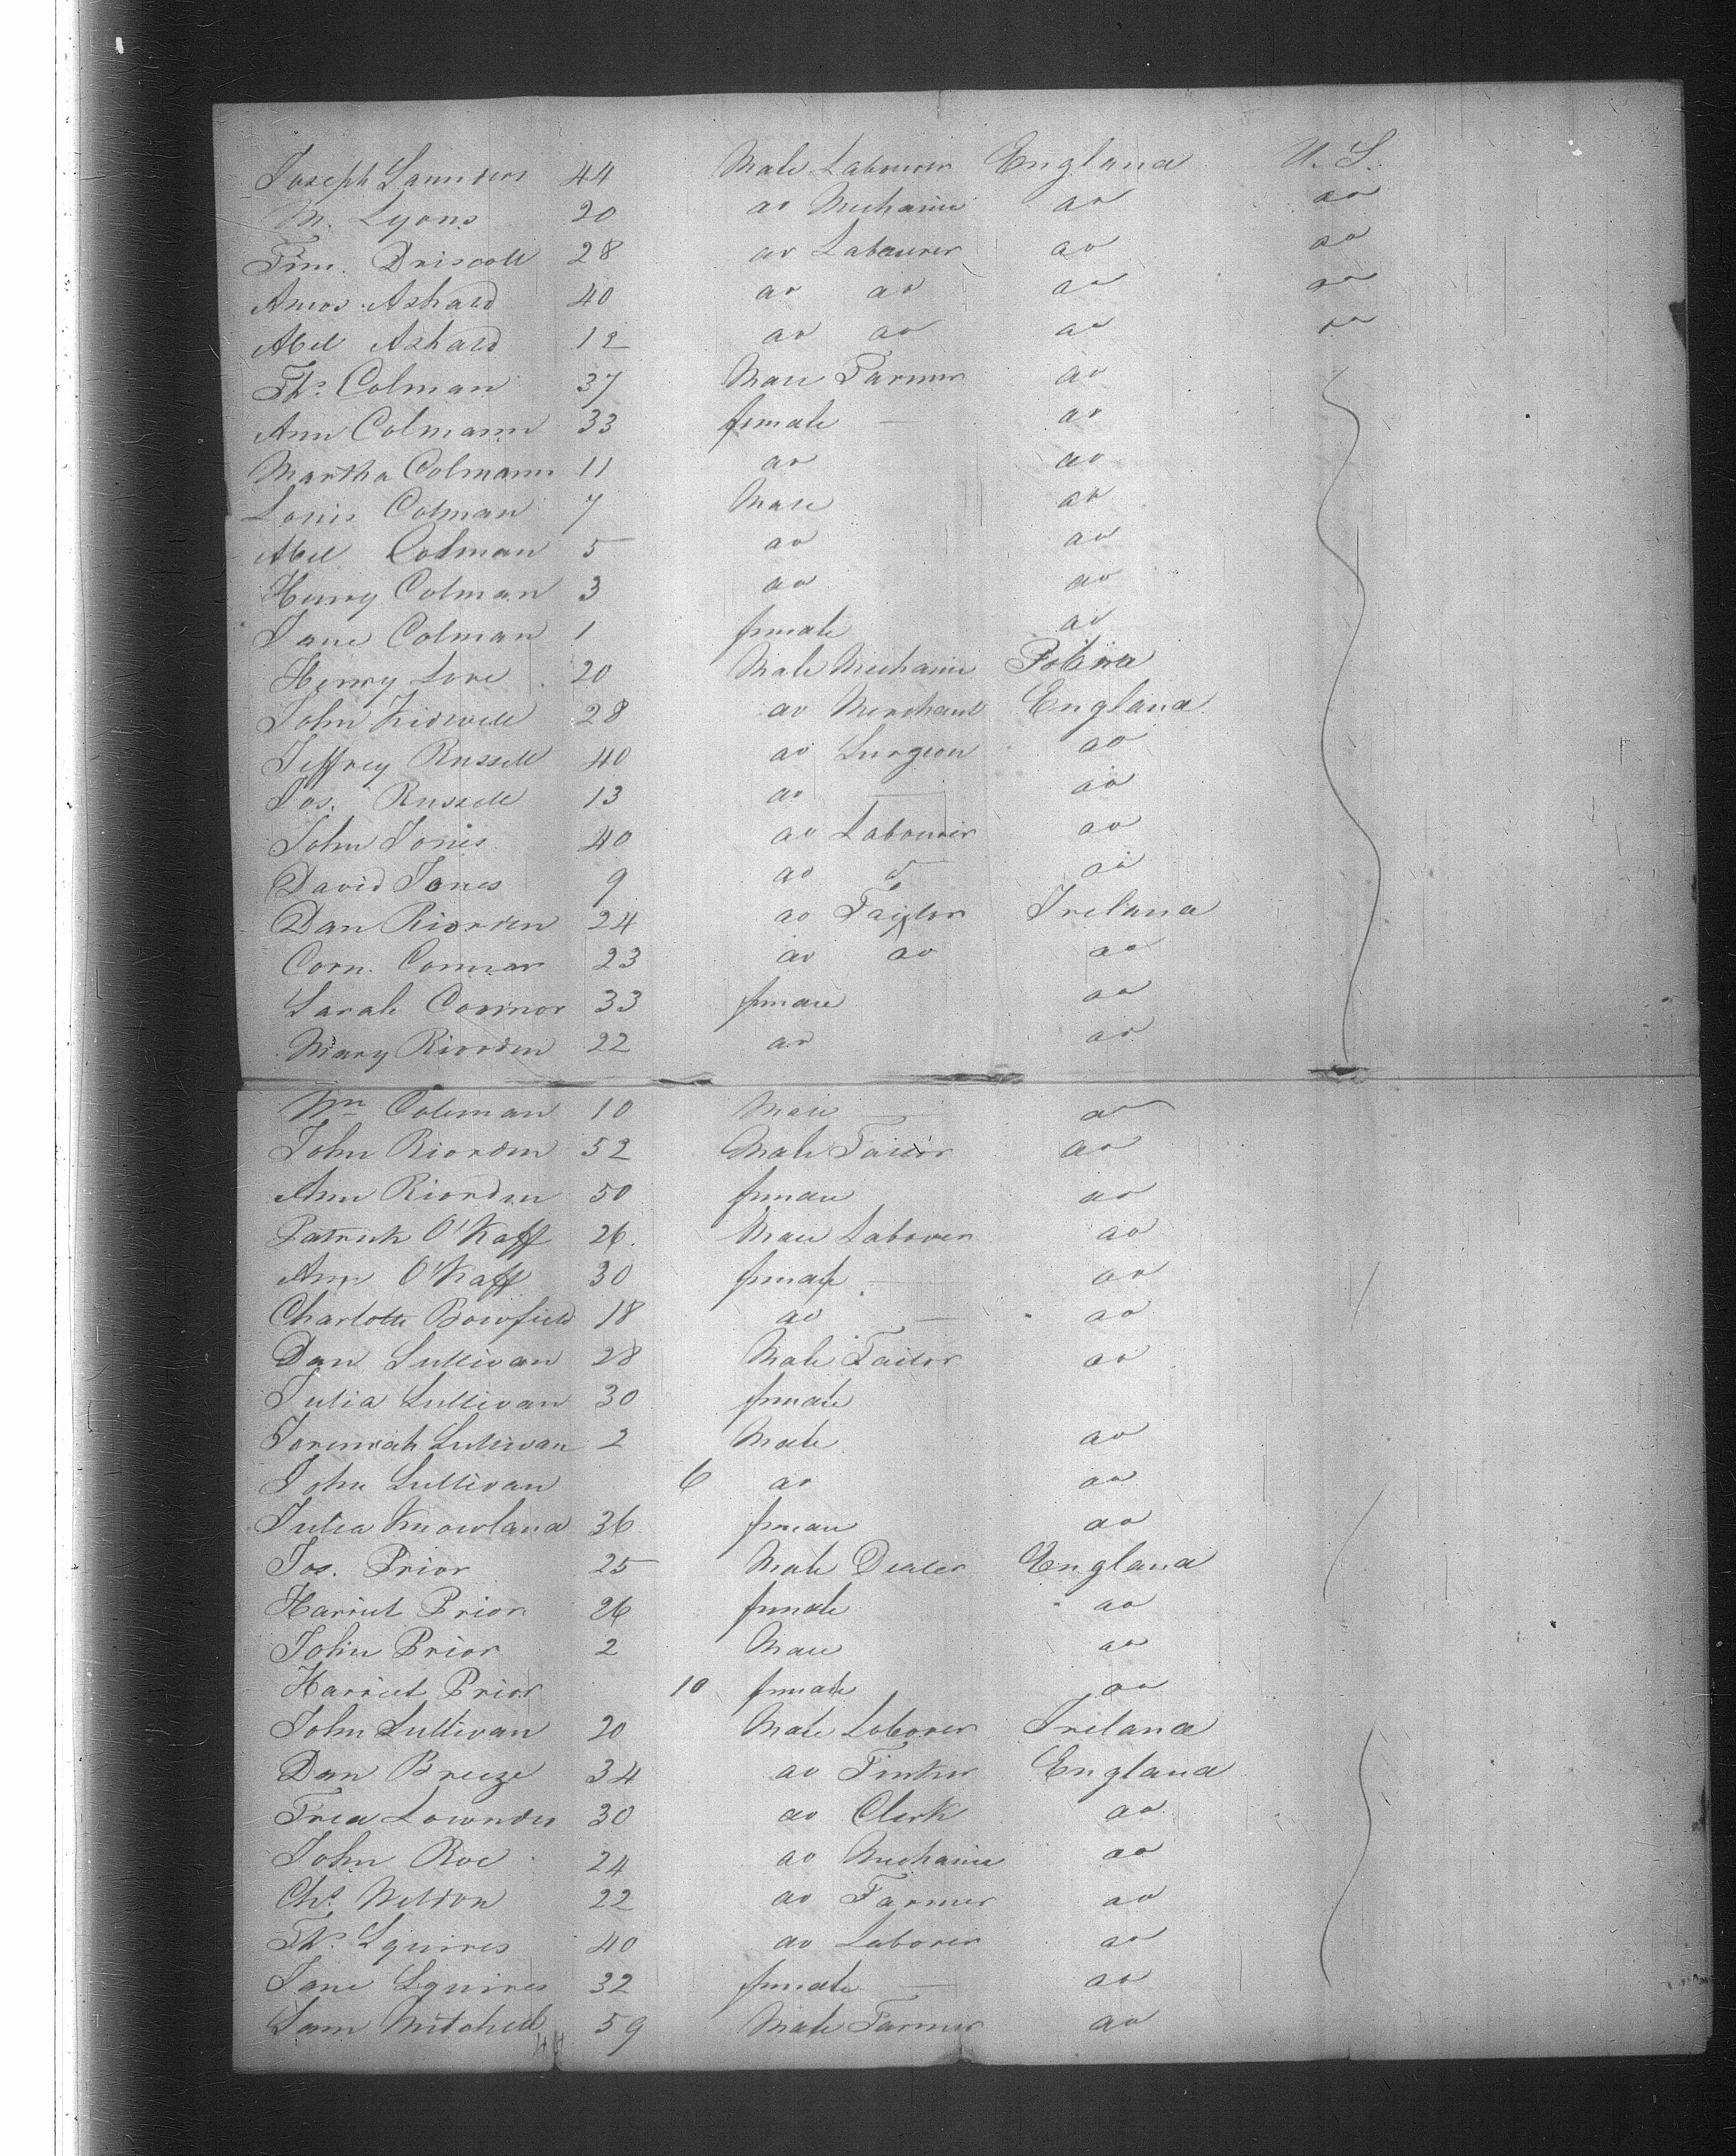 Joseph Saunders 44 Male Labourer England U. S.
M. Lyons 20 do Mechanic do do
Tim. Driscoll 28 do Labourer do do
Amos Ashard 40 do do do do
Abel Ashard 12 do do do do
Ths. Colman 37 Male Farmer do
Ann Colmann 33 female — do
Martha Colmann 11 do do
Louis Colman 7 Male do
Abel Colman 5 do do
Henry Colman 3 do do
Jane Colman 1 female do
Henry Love 20 Male Mechanic
John Kidwell 28 do Merchant England
Jeffrey Russell 40 do Surgeon do
Jos. Russell 13 do — do
John Jones 40 do Labourer do
David Jones 9 do do
Dan Riorden 24 do Tailor Ireland
Corn. Connor 23 do do do
Sarah Connor 33 female do
Mary Riorden 22 do do
Wm Coleman 10 Male — do
John Riorden 52 Male Tailor do
Ann Riorden 50 female do
Patrick O'Kaff 26 Male Laborer do
Ann O'Kaff 30 female — do
Charlotte Bowfield 18 do — do
Dan Sullivan 28 Male Tailor do
Julia Sullivan 30 female
Jeremiah Sullivan 2 Male do
John Sullivan 6 do do
Julia Knowland 36 female do
Jos. Prior 25 Male Dealer England
Harriet Prior 26 female do
John Prior 2 Male do
Harriet Prior 10 female do
John Sullivan 20 Male Laborer Ireland
Dan Breeze 34 do Tinker England
Fred Lowndes 30 do Clerk do
John Roe 24 do Mechanic do
Chs. Weldon 22 do Farmer do
Ths. Squires 40 do Laborer do
Jane Squires 32 female — do
Sam Mitchell 59 Male Farmer do
44